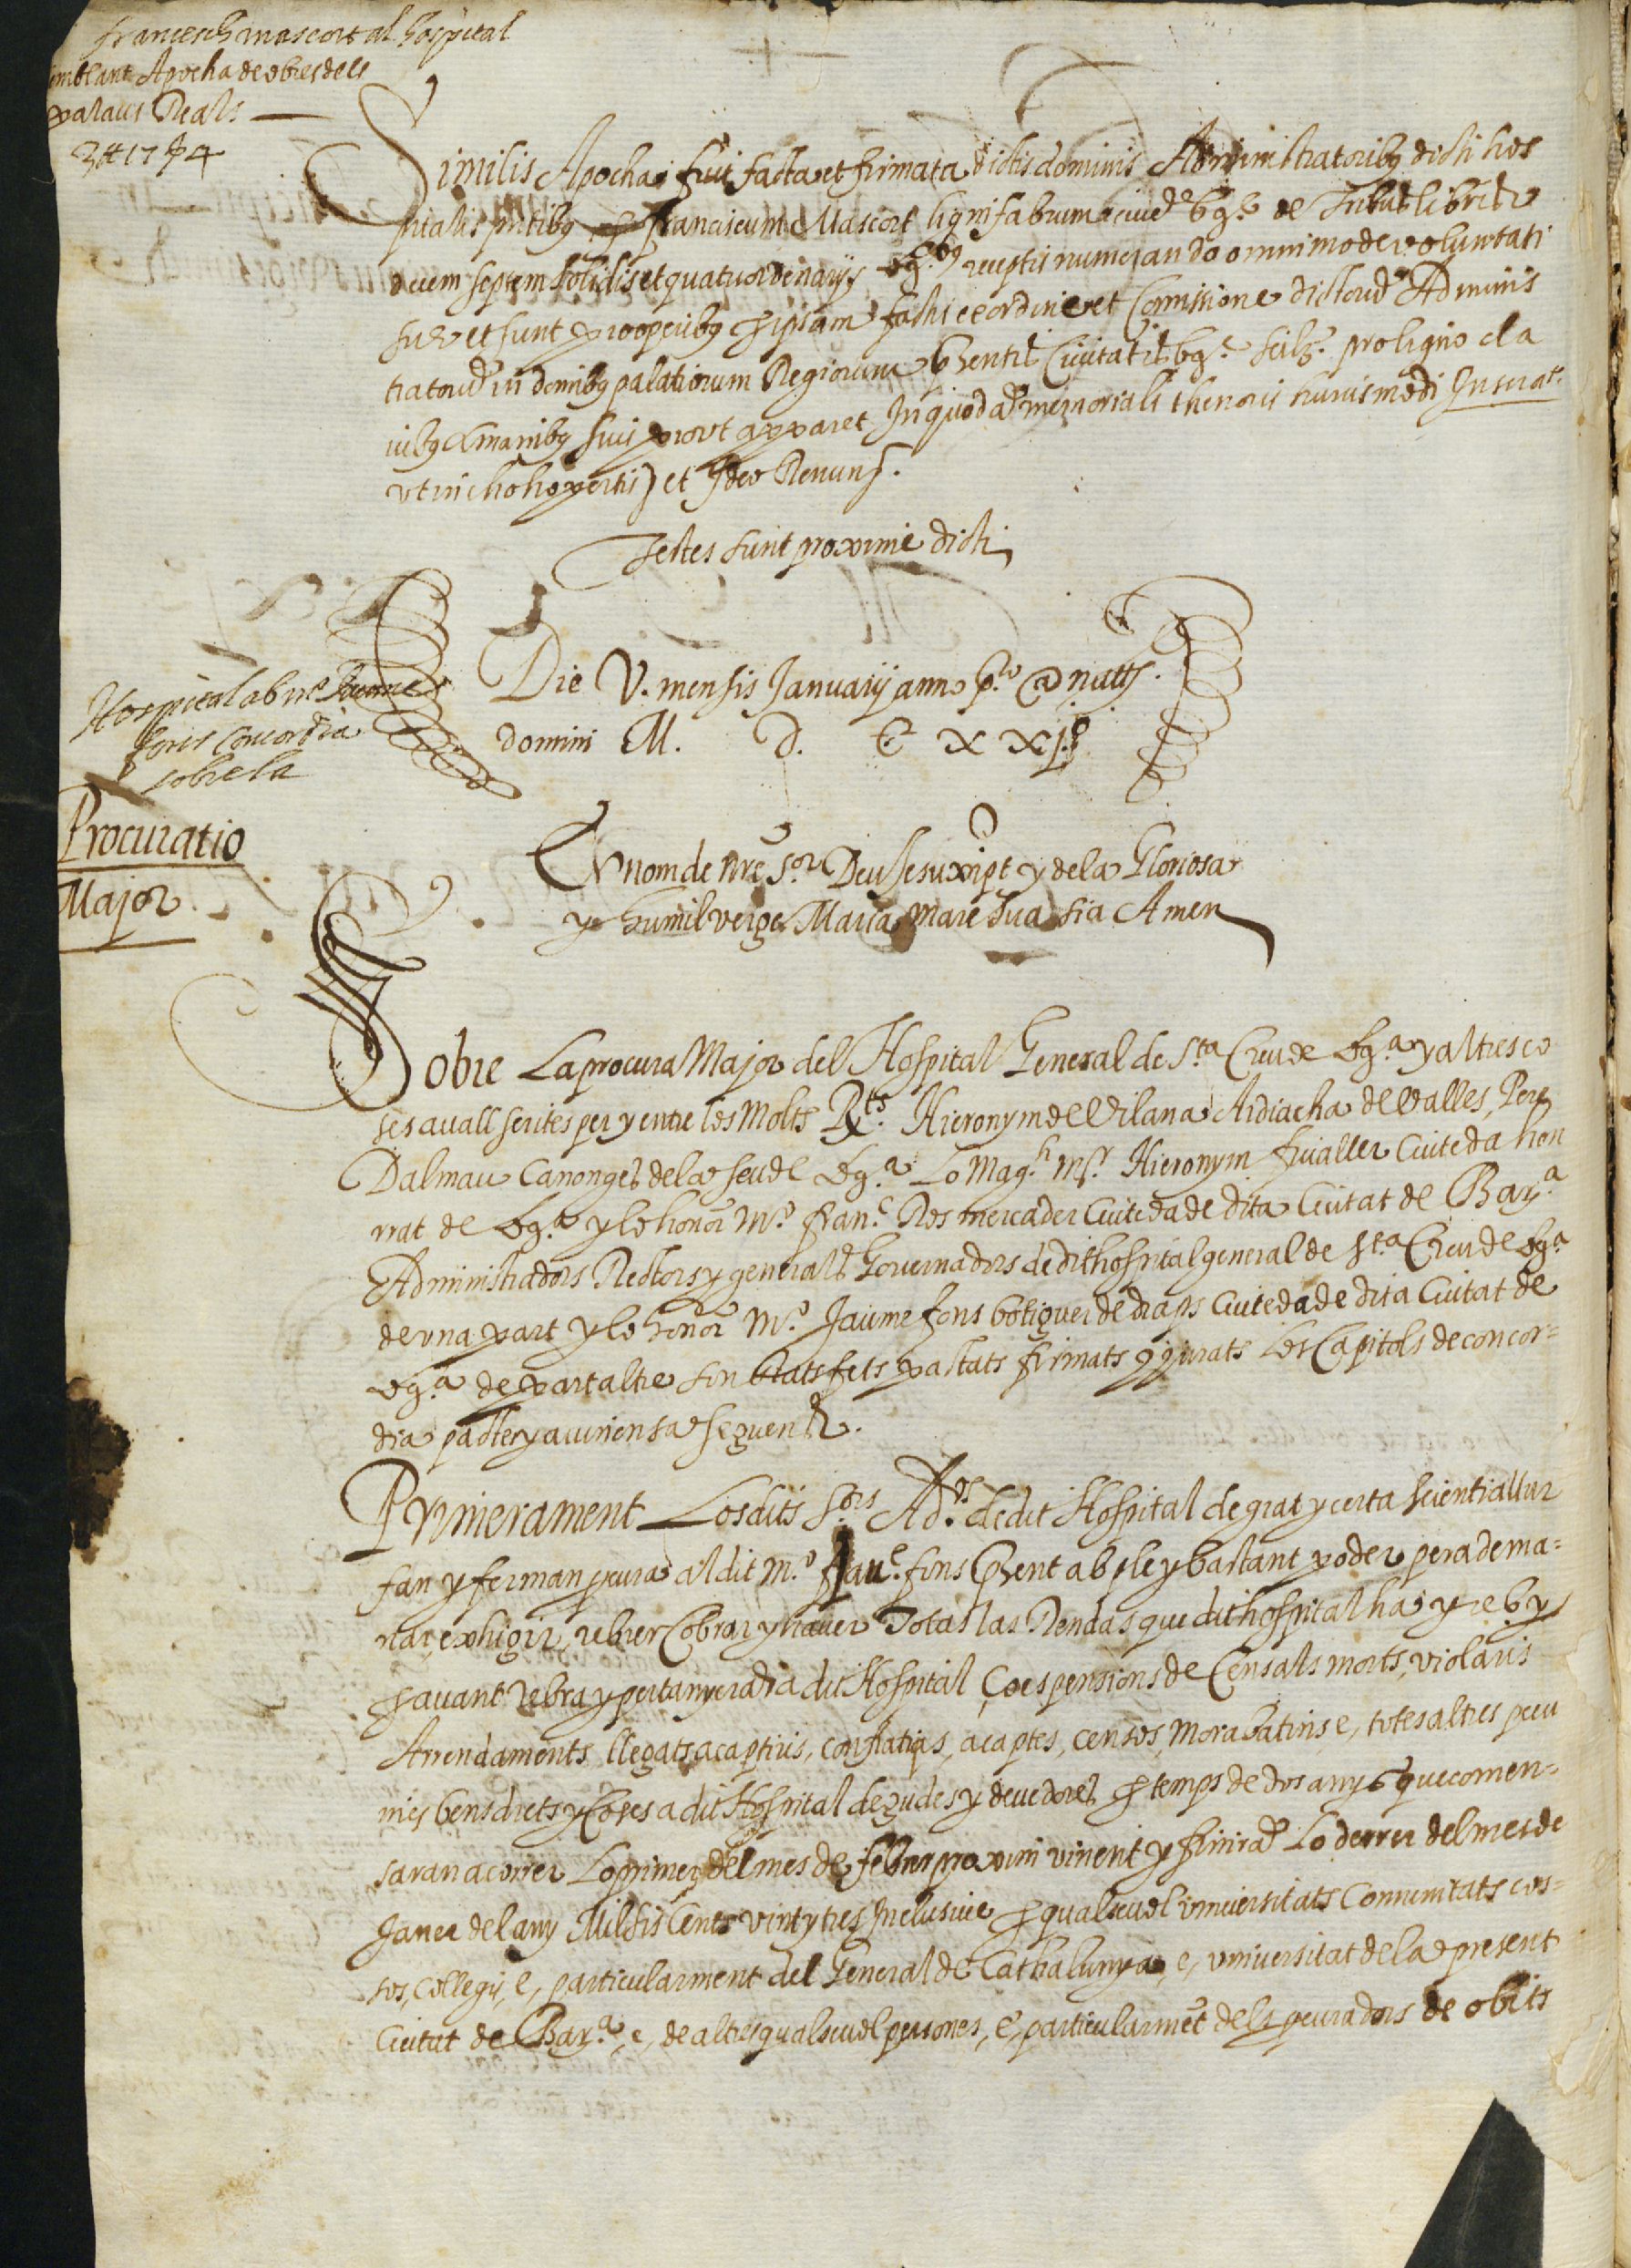 francesch mascort al hospital
semblant Apocha de obres dels
palaus Reals
3 ll 17 ß 4
Similis Apocha fuit facta et firmata dictis dominis Administratoribus dicti hos
pitalis pntibus per franciscum Mascort lignifabrum ciuem bar.e de tribus libris
decem septem solidis et quatuor denarijs receptis numerando omnimode voluntati
sue et sunt pro operibus per ipsum factis ex ordine et Comissione dictorum Adminis
tratorum in domibus palatiorum Regiorum pñentis Ciuitatis bar.e pro ligno cla
uibus manibus suis prout apparet In quodam memoriali thenoris huiusmodi Inserat.
et Ideo Renun.
Testes sunt proxime dicti
Die V. mensis Januarij anno p.to a natt.
domini M. D. C XX j.º
Hospital ab me Jaume
fons concordia
sobre la
Procuratio
Major
En nom de nre S.or Deu Jesuxpt y de la Gloriosa
y humil verge Maria mare sua sia Amen
Sobre La procura Major del Hospital General de S.ta Creu de bar.a y altres co
ses auall scrites per y entre los Molts R.ts Hieronym de Vilana Ardiacha de Valles, Pere
Dalmau Canonges de la seu de bar.a Lo Mag.h m.r Hieronym fiualler Ciuteda hon
rrat de bar.a y lo honor m.º fran.c Ros mercader Ciuteda de dita Ciutat de Bar.a
Administradors Rectors y generals Gouernadors de dit hospital general de s.ta Creu de bar.a
de vna part y lo honor m.º Jaume fons botiguer de draps Ciuteda de dita Ciutat de
bar.a de part altre son stats fets pactats firmats y jurats Los Capitols de concor=
dia pactes y auinensa seguents.
Primerament Los dits S.ors Ad.ors de dit Hospital de grat y certa scientia llur
fan y ferman pcura al dit m.º Jau.e fons pñent ab ple y bastant poder pera dema=
nar, exhigir, rebrer Cobrar y hauer Totas las Rendas que dit hospital ha y reb y
per auant rebra y pertanyeran a dit Hospital, ço es pensions de Censals morts, violaris
Arrendaments llegats acaptiris, confratias, acaptes, censos, morabatins e, totes altres pecu
nies bens drets y Coses a dit Hospital degudes y deuedores per temps de dos anys que comen=
saran a correr Lo primer del mes de febrer proxim vinent y finira Lo derrer del mes de
Janer del any Mil sis Cents vint y tres Inclusiue per qualseuol vniuersitats Comunitats cos=
sos, Collegis, e, particularment del General de Cathalunya, e, vniuersitat de la present
Ciutat de Bar.a, e, de altres qualseuol persones, e, particularmēt dels pcuradors de obits